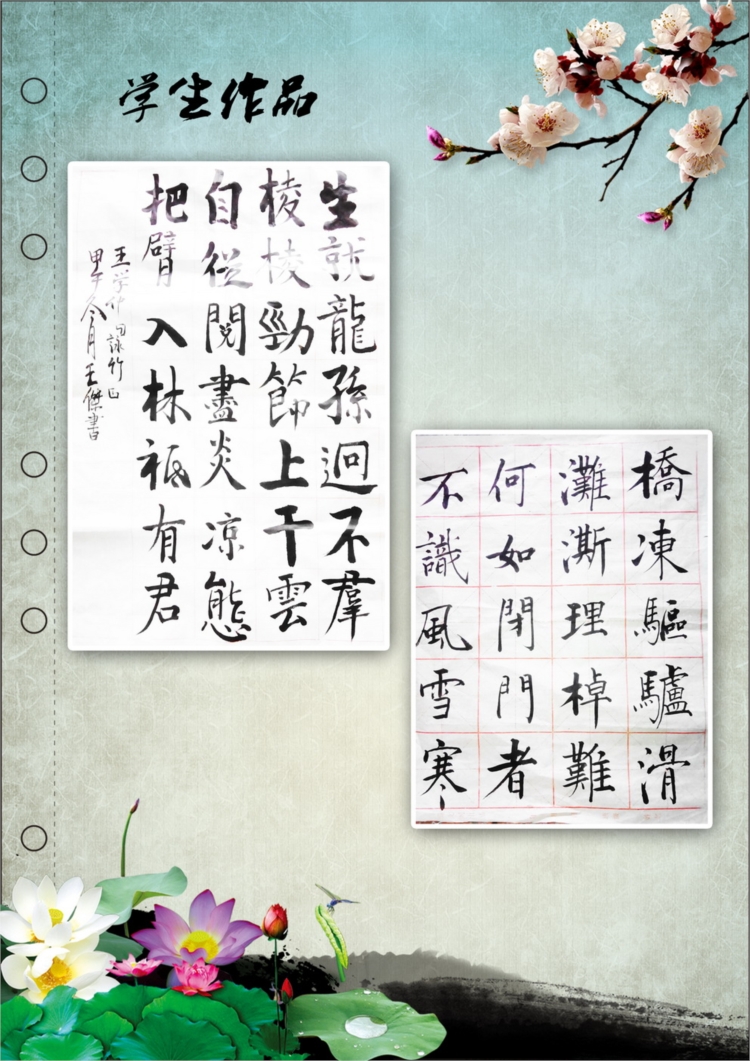 学生作品
生就龍孫迥不羣
棱棱勁節上干雲
自從閱盡炎凉態
把臂入林祇有君
王学仲句詠竹
甲午冬月王傑書
橋凍驅驢滑
灘澌理棹難
何如閉門者
不識風雪寒